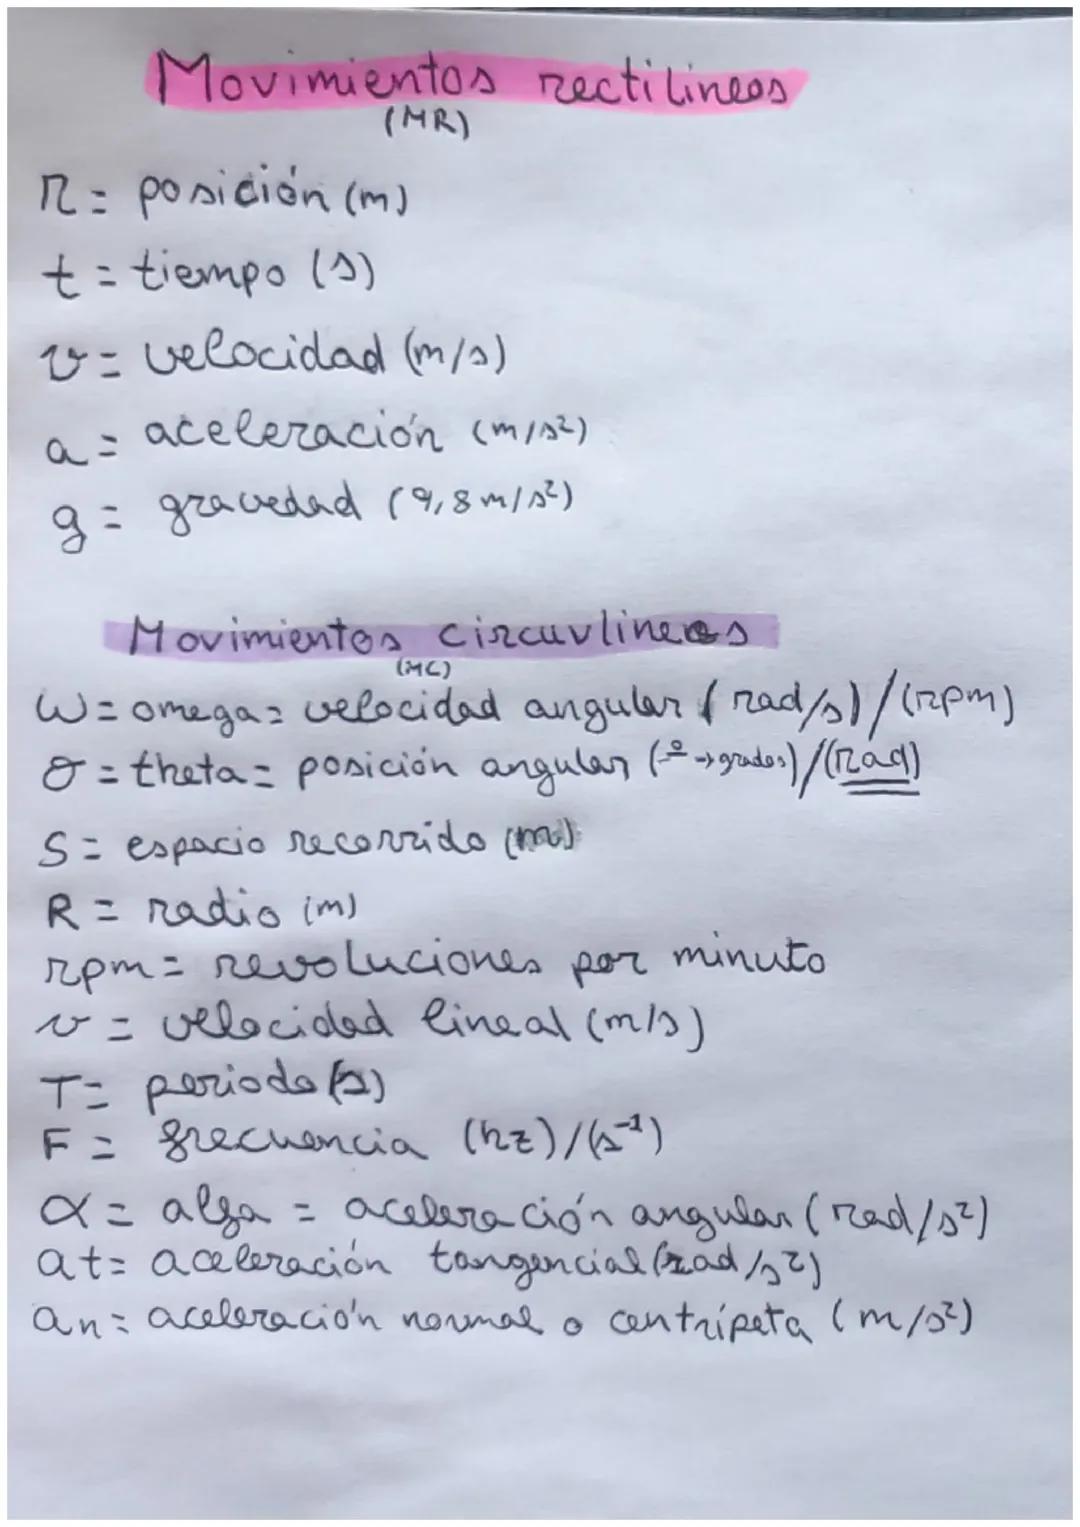 Movimientos rectilineos
(MR)
r = posición (m)
t = tiempo (s)
v = velocidad (m/s)
a = aceleración (m/s²)
g = gravedad (9,8 m/s²)
Movimientos circuvlineos
(MC)
W = omega = velocidad angular (rad/s) / (rpm)
θ = theta = posición angular (º → grados) / (rad)
S = espacio recorrido (m)
R = radio (m)
rpm = revoluciones por minuto
v = velocidad lineal (m/s)
T = periodo (s)
F = frecuencia (hz) / (s⁻¹)
α = alfa = aceleración angular (rad/s²)
at = aceleración tangencial (rad/s²)
an = aceleración normal o centrípeta (m/s²)